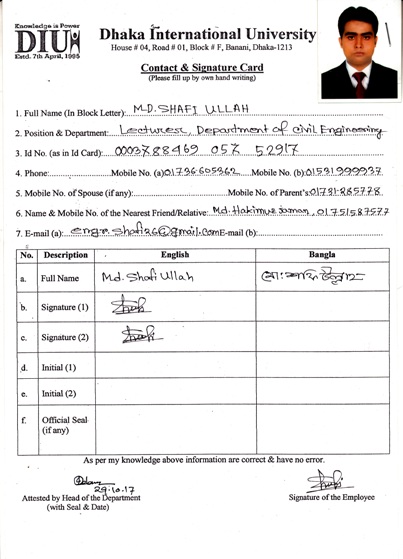 Knowledge is Power
DIU
Estd. 7th April, 1995
Dhaka International University
House # 04, Road # 01, Block # F, Banani, Dhaka-1213
Contact & Signature Card
(Please fill up by own hand writing)
1. Full Name (In Block Letter): MD. SHAFI ULLAH
2. Position & Department: Lecturer, Department of Civil Engineering
3. Id No. (as in Id Card): 0003788469 057 52917
4. Phone: Mobile No. (a) 01736-605362 Mobile No. (b): 01531999937
5. Mobile No. of Spouse (if any): Mobile No. of Parent's 01731-285778
6. Name & Mobile No. of the Nearest Friend/Relative: Md. Hakimuzzaman, 01751587577
7. E-mail (a): engr.shafi26@gmail.com E-mail (b):
No. Description English Bangla
a. Full Name Md. Shafi Ullah মো: শফি উল্লাহ
b. Signature (1)
c. Signature (2)
d. Initial (1)
e. Initial (2)
f. Official Seal
(if any)
As per my knowledge above information are correct & have no error.
29.10.17
Attested by Head of the Department
(with Seal & Date)
Signature of the Employee